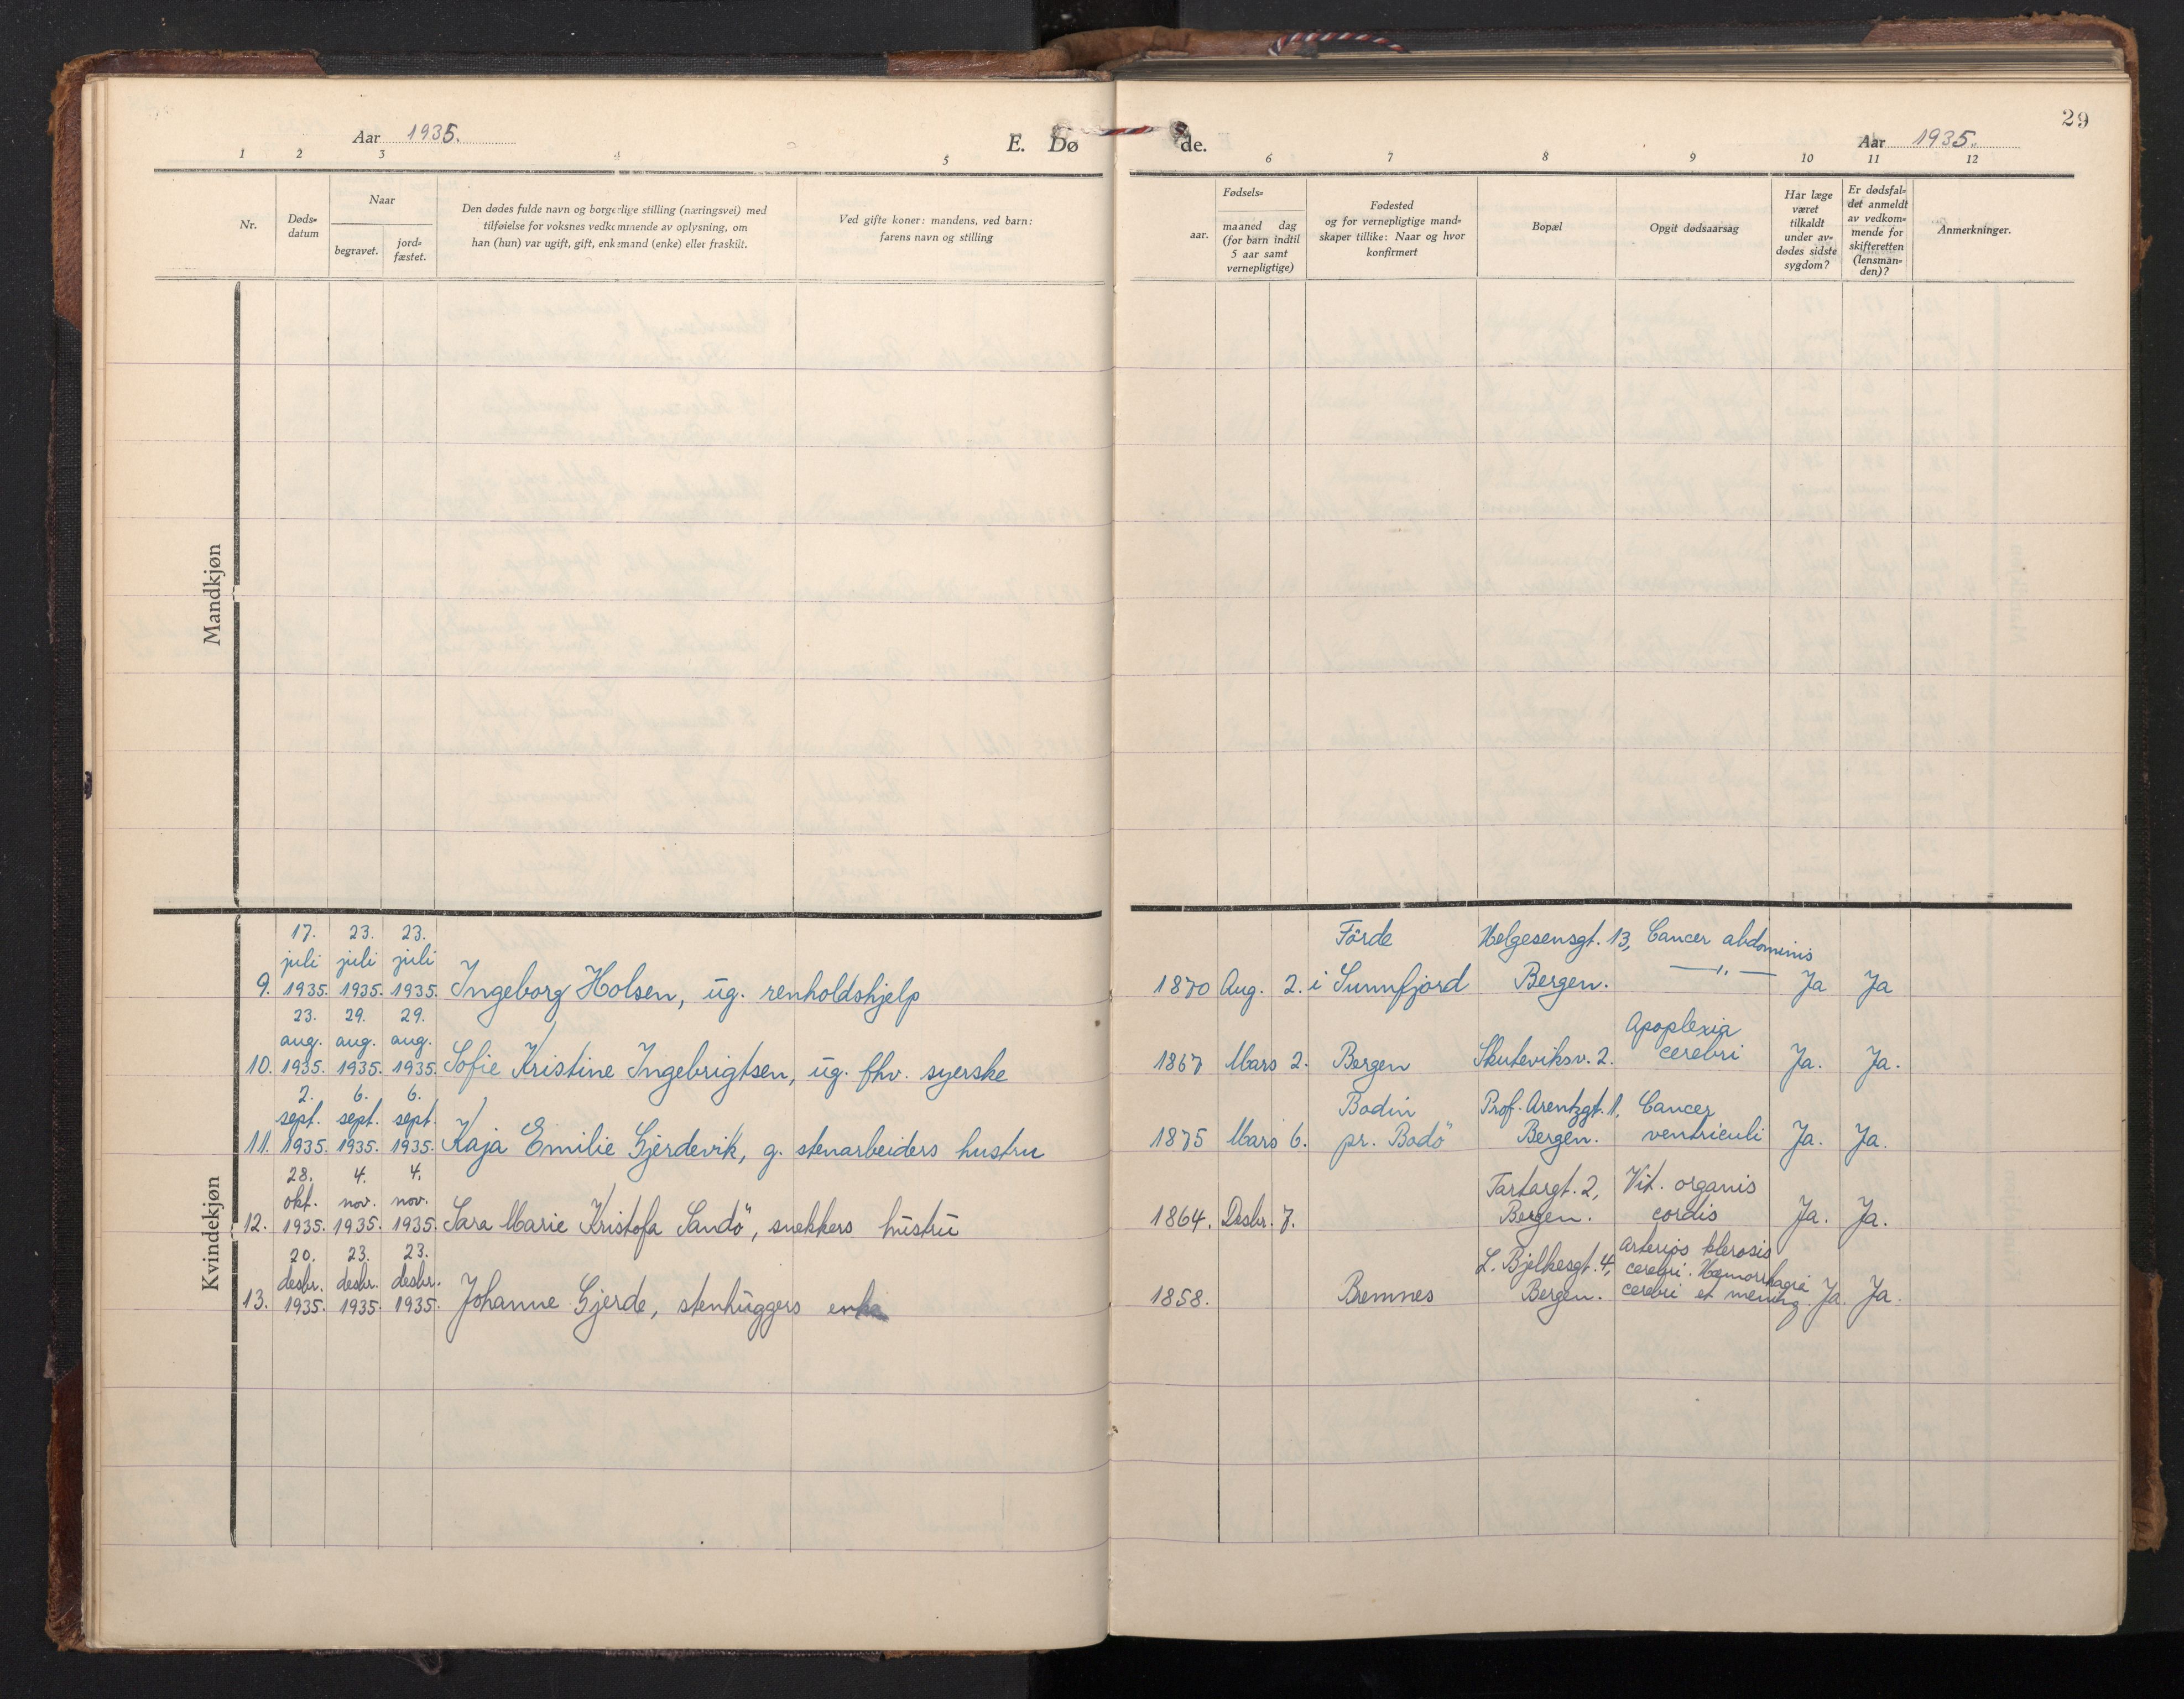 29
Aar 1935.
E. Dø
de.
Aar 1935.
1 2 3 4 5
6 7 8 9 10 11 12
Nr.
Døds-
datum
Naar
begravet.
jord-
fæstet.
Den dødes fulde navn og borgerlige stilling (næringsvei) med
tilføielse for voksnes vedkommende av oplysning, om
han (hun) var ugift, gift, enkemand (enke) eller fraskilt.
Ved gifte koner: mandens, ved barn:
farens navn og stilling
Fødsels-
aar.
maaned dag
(for barn indtil
5 aar samt
vernepligtige)
Fødested
og for vernepligtige mand-
skaper tillike: Naar og hvor
konfirmert
Bopæl
Opgit dødsaarsag
Har læge
været
tilkaldt
under av-
dødes sidste
sygdom?
Er dødsfal-
det anmeldt
av vedkom-
mende for
skifteretten
(lensman-
den)?
Anmerkninger.
Mandkjøn
Kvindekjøn
17. 23. 23. Förde Helgesensgt. 13, Cancer abdominis
juli juli juli
9. 1935. 1935. 1935. Ingeborg Holsen, ug. renholdshjelp 1870 Aug. 2. i Sunnfjord Bergen. —„— Ja Ja
23. 29. 29. Apoplexia
aug. aug. aug.
10. 1935. 1935. 1935. Sofie Kristine Ingebrigtsen, ug. fhv. syerske 1867 Mars 2. Bergen Skuteviksv. 2. cerebri Ja. Ja.
2. 6. 6. Bodin Prof. Arentzgt. 1, Cancer
sept. sept. sept.
11. 1935. 1935. 1935. Kaja Emilie Gjerdevik, g. stenarbeiders hustru 1875 Mars 6. pr. Bodö Bergen. ventriculi Ja. Ja.
28. 4. 4. Tartargt. 2, Vit. organis
okt. nov. nov.
12. 1935. 1935. 1935. Sara Marie Kristofa Sandö, snekkers hustru 1864. Desbr. 7. Bergen. cordis Ja. Ja.
20. 23. 23. Arterios klerosis
desbr. desbr. desbr. L. Bjelkesgt. 4, cerebri. Hæmorrhagia
13. 1935. 1935. 1935. Johanne Gjerde, stenhuggers enke 1858. Bremnes Bergen. cerebri et mening. Ja. Ja.